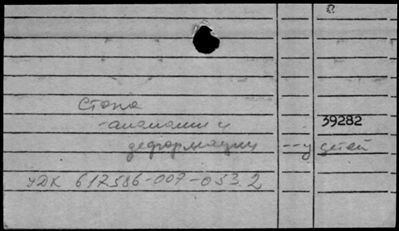 Стопа
-аномалии и 39282
деформации --у детей
УДК 617.586-007-053.2